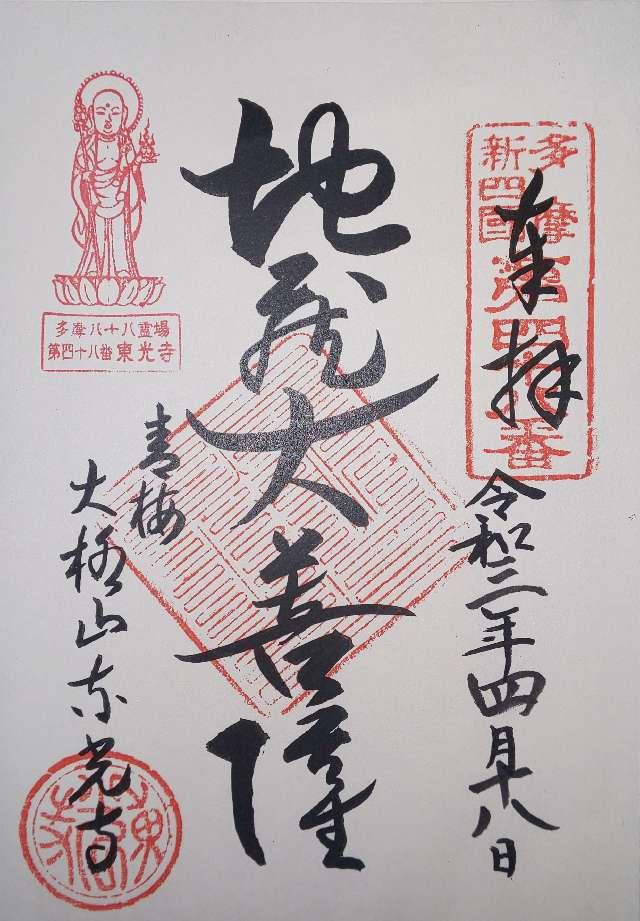 奉拝
多摩
新四國
第四十八番
令和三年四月十八日
地蔵大菩薩
多摩八十八霊場
第四十八番 東光寺
青梅
大柳山東光寺